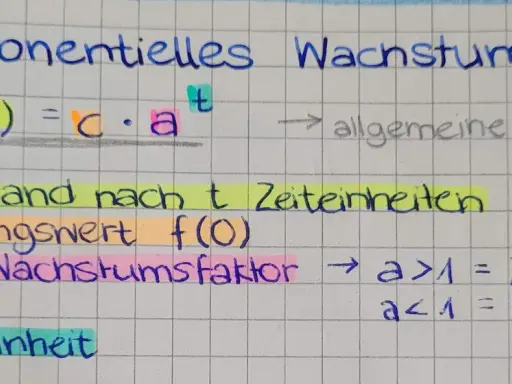 onentielles Wachstum
) = c · a^t → allgemeine
and nach t Zeiteinheiten
ngswert f(0)
Wachstumsfaktor → a > 1 =
a < 1 =
inheit